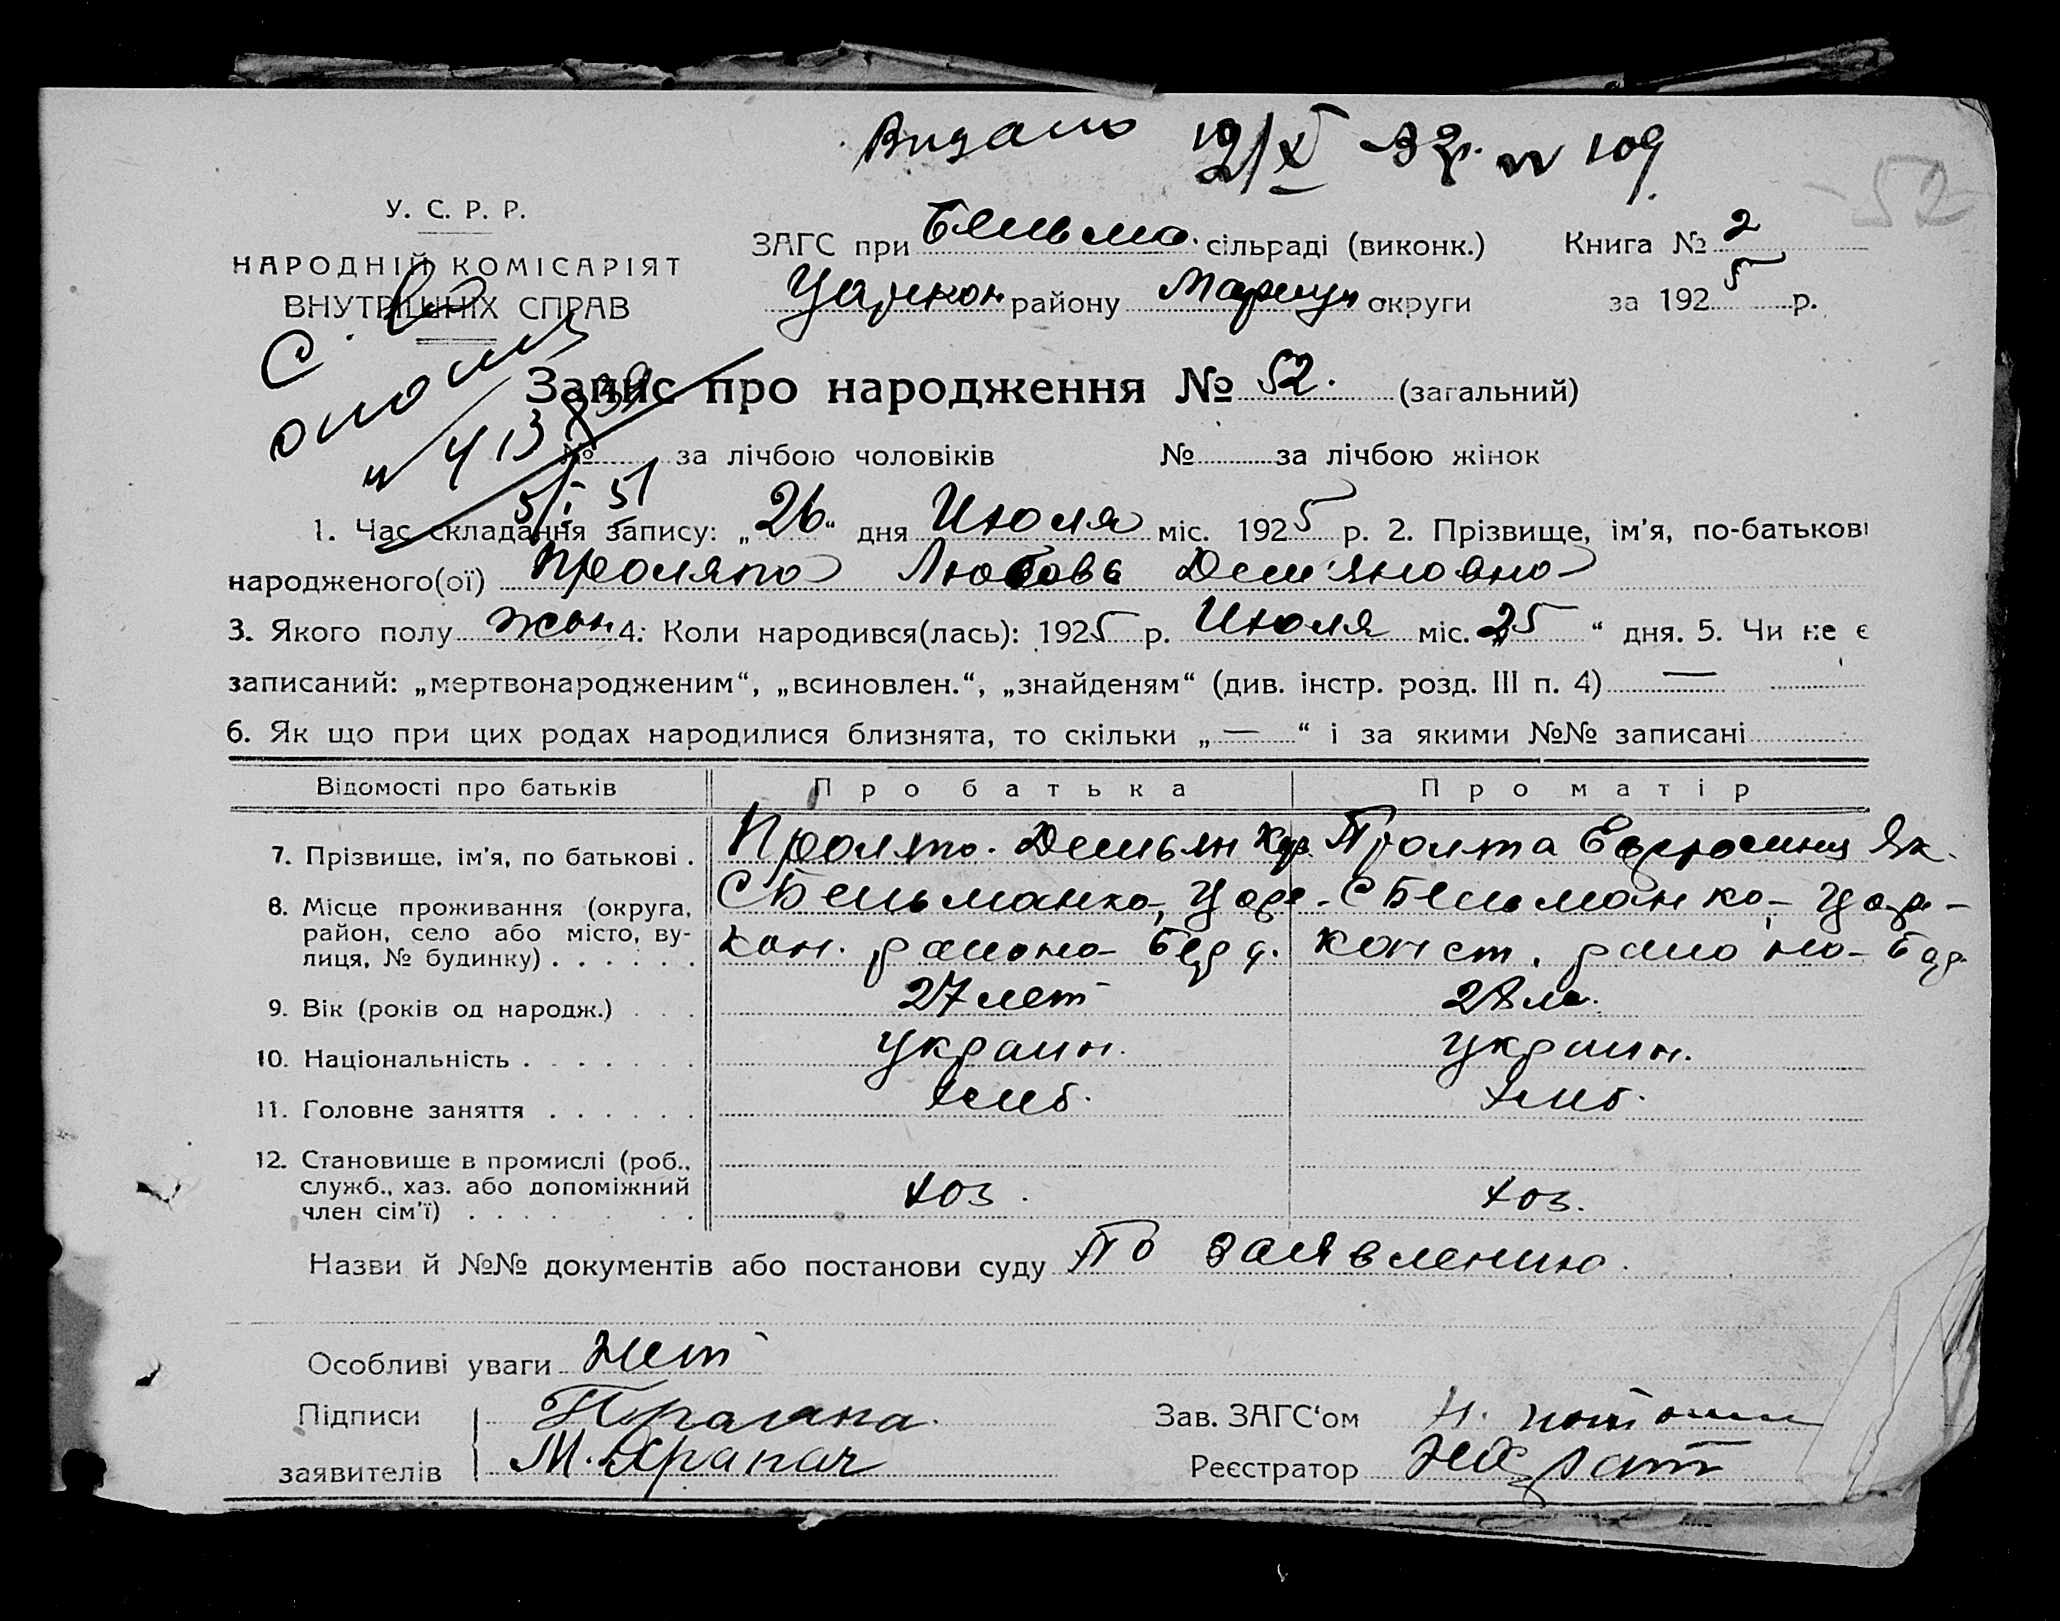 Видано 19/X 32р. № 109
52
У. С. Р. Р.
НАРОДНІЙ КОМІСАРІЯТ
ВНУТРІШНІХ СПРАВ
ЗАГС при Бельма. сільраді (виконк.) Книга № 2
Царекон району Мариуп округи за 1925 р.
№ 413
5/I 51
Запис про народження № 52. (загальний)
№ за лічбою чоловіків № за лічбою жінок
1. Час складання запису: „26“ дня Июля міс. 1925 р. 2. Прізвище, ім'я, по-батькові
народженого(ої) Проляпа Любовь Демьяновна
3. Якого полу жен 4. Коли народився(лась): 1925 р. Июля міс. „25“ дня. 5. Чи не є
записаний: „мертвонародженим“, „всиновлен.“, „знайденям“ (див. інстр. розд. III п. 4) —
6. Як що при цих родах народилися близнята, то скільки „—“ і за якими №№ записані
Відомості про батьків Про батька Про матір
7. Прізвище, ім'я, по батькові . Демьян Ефросиния Як.
8. Місце проживання (округа, С Бельманка, Царе- С Бельманка, Царе-
район, село або місто, ву- кон. района конст. района
лиця, № будинку) . . . . . .
9. Вік (років од народж.) . . . 27 лет 28 ле.
10. Національність . . . . . . . украин. украин.
11. Головне заняття . . . . . . хлеб. хлеб.
12. Становище в промислі (роб.,
служб., хаз. або допоміжний хоз. хоз.
член сім'ї) . . . . . . . .
Назви й №№ документів або постанови суду По заявлению.
Особливі уваги Нет
Підписи Зав. ЗАГС'ом
заявителів М. Драпач Реєстратор